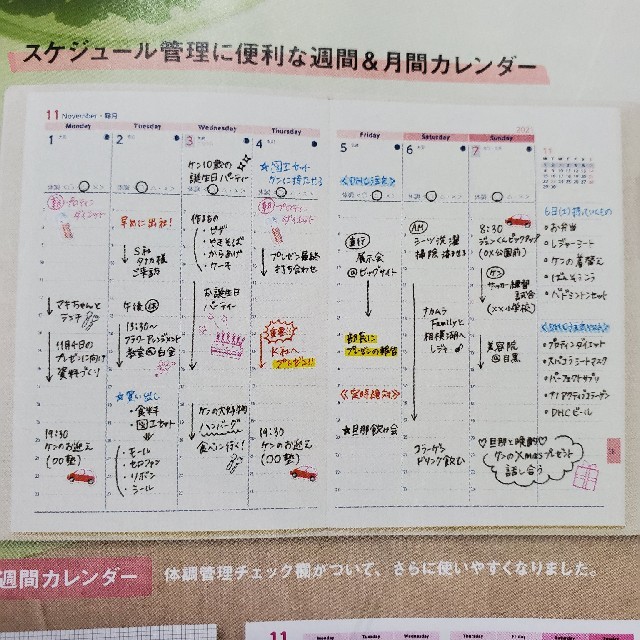 スケジュール管理に便利な週間&月間カレンダー
11 November・霜月
Monday
Tuesday
Wednesday
Thursday
Friday
Saturday
Sunday
1
朝 プロティン
ダイエット
マキちゃんと
ランチ
11月4日の
プレゼンに向け
資料づくり
19:30
ケンのお迎え
(○○塾)
2
早めに出社!
S社
タカ様
ご来訪
午後休
13:30~
フラワーアレンジメント
教室@白金
☆買い出し
・食料
・図工セット
・モール
・セロファン
・リボン
・シール
3
ケン10歳の
誕生日パーティー
作るもの
・ピザ
・やきそば
・からあげ
・ケーキ
お誕生日
パーティー
ケンの大好物
ハンバーグ
食べに行く!
4
☆図工セット
ケンに持たせる
朝 プロティン
ダイエット
プレゼン最終
打ち合わせ
重要!
K社へ
プレゼン!
19:30
ケンのお迎え
(○○塾)
5
直行
展示会
@ビッグサイト
部長に
プレゼンの報告
《定時絶対》
★旦那飲み会
6
AM
シーツ洗濯
掃除 済ませる
ナカムラ
Familyと
相模湖へ
レジャー
コラーゲン
ドリンク飲む
7
8:30
(○×公園前)
ケン
サッカー練習
試合
(××小学校)
美容院
@目黒
♡旦那と晩酌♡
ケンのXmasプレゼント
話し合う
11
6日(土)持っていくもの
○お弁当
○レジャーシート
○ケンの着替え
○ばんそうこう
○バドミントンセット
○プロティンダイエット
○パーフェクトサプリ
○DHCビール
週間カレンダー
体調管理チェック欄がついて、さらに使いやすくなりました。
11
Monday
Tuesday
Wednesday
Thursday
Friday
Saturday
Sunday